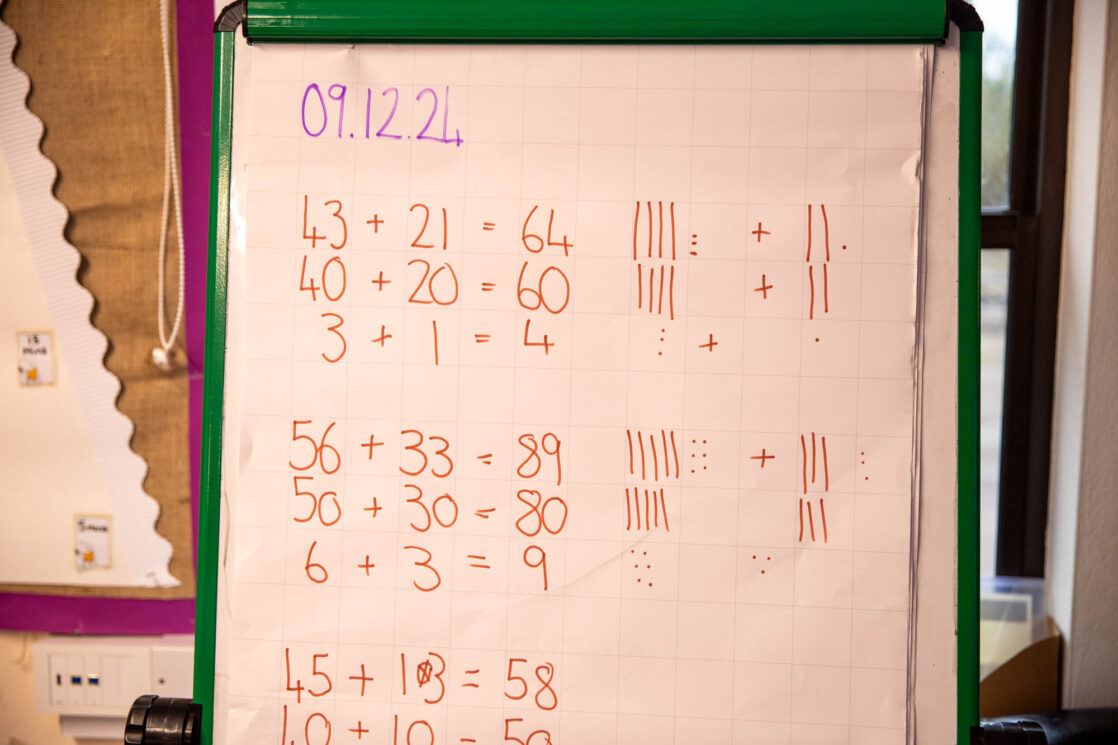 09.12.24
43 + 21 = 64
+
40 + 20 = 60
+
3 + 1 = 4
+
56 + 33 = 89
+
50 + 30 = 80
6 + 3 = 9
45 + 13 = 58
40 + 10 = 50
15 mins
5 mins